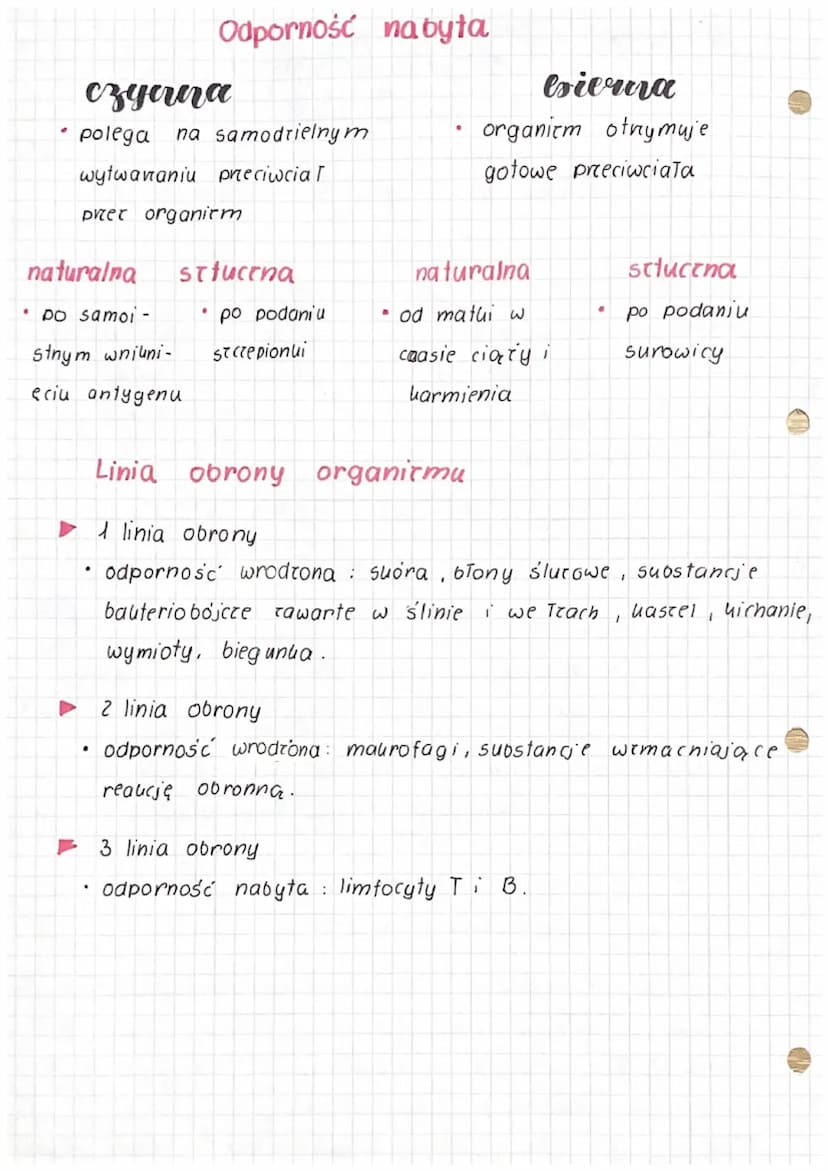 Odporność nabyta
czynna
• polega na samodzielnym
wytwarzaniu przeciwciał
przez organizm
bierna
• organizm otrzymuje
gotowe przeciwciała
naturalna
• po samoi-
stnym wnikni-
ęciu antygenu
sztuczna
• po podaniu
szczepionki
naturalna
• od matki w
czasie ciąży i
karmienia
sztuczna
• po podaniu
surowicy
Linia obrony organizmu
▶ 1 linia obrony
• odporność wrodzona : skóra , błony śluzowe , substancje
bakteriobójcze zawarte w ślinie i we łzach , kaszel , kichanie,
wymioty, biegunka .
▶ 2 linia obrony
• odporność wrodzona: makrofagi, substancje wzmacniające
reakcję obronną .
▶ 3 linia obrony
• odporność nabyta : limfocyty T i B.